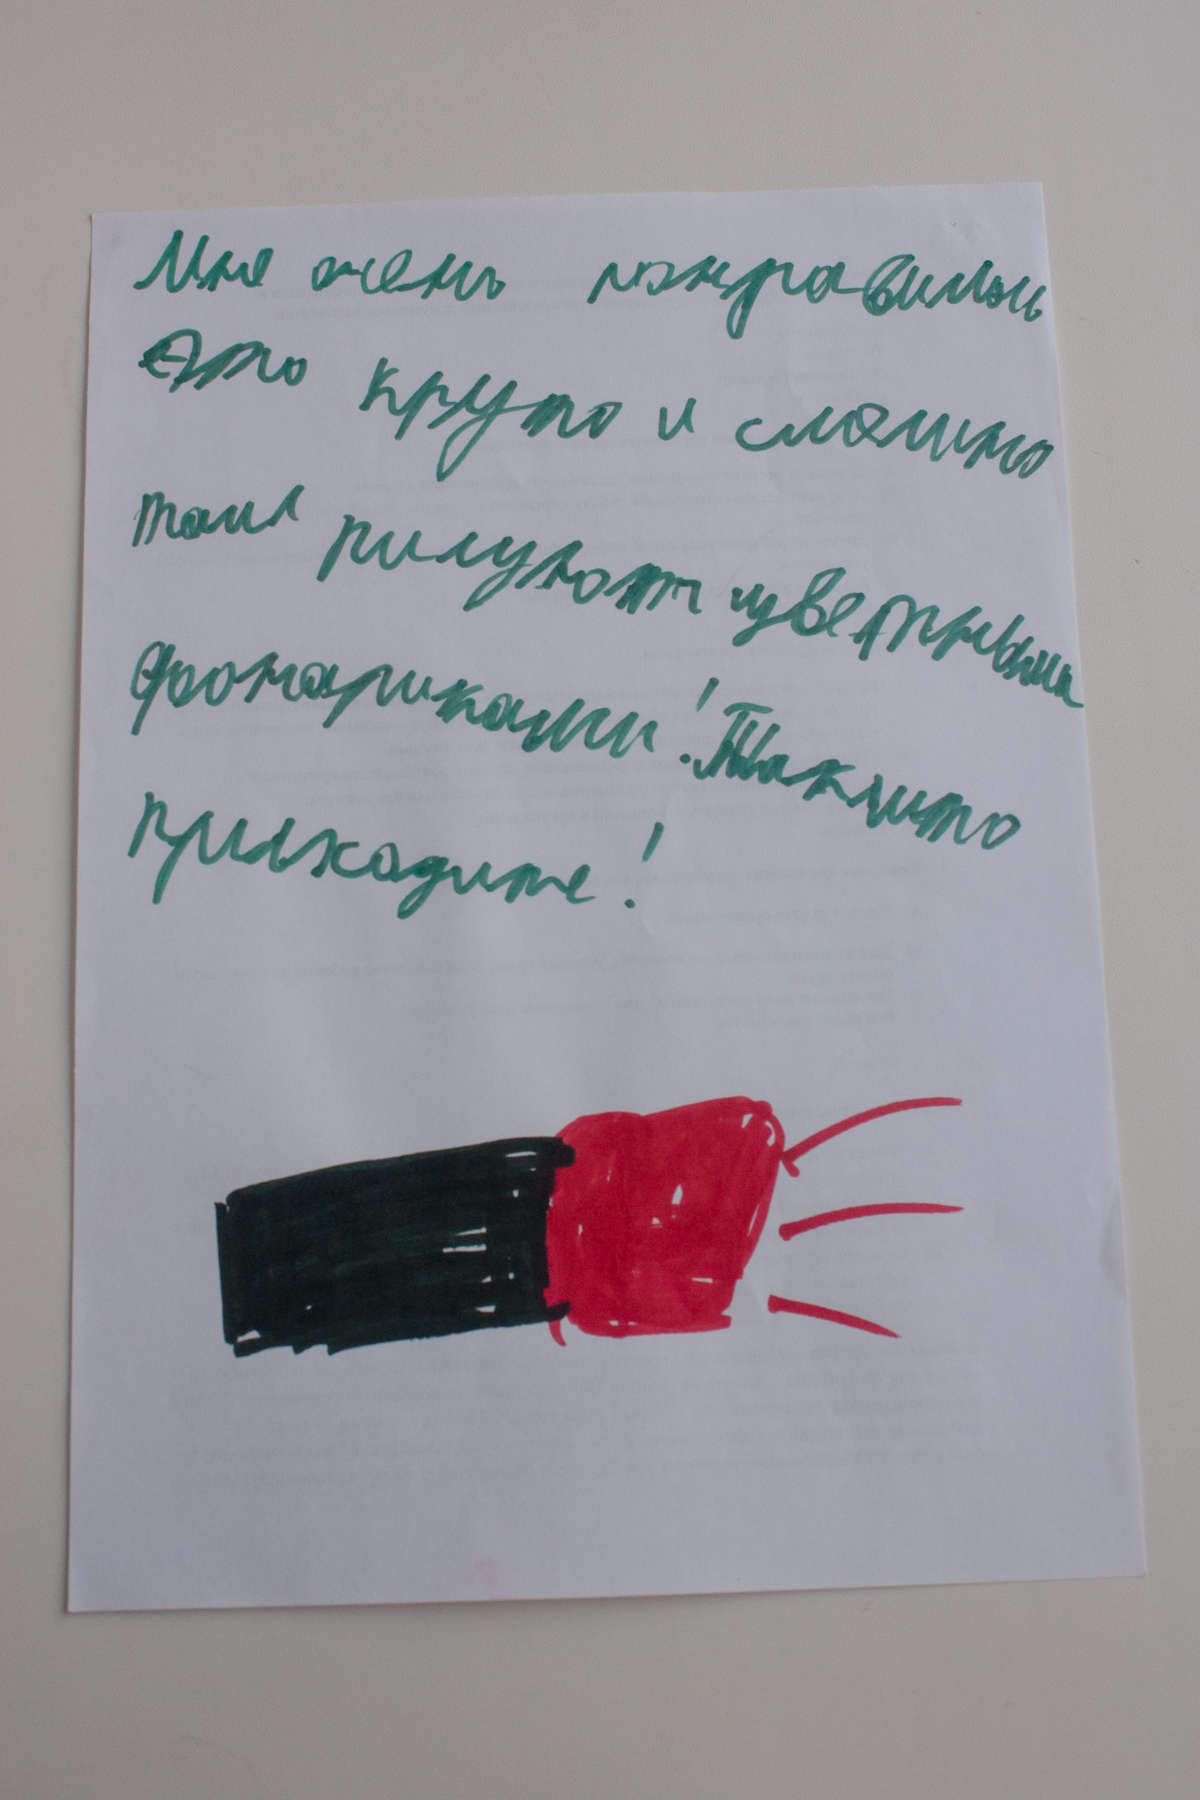 Мне очень понравилось
Это круто и
там рисуют цветными
фонариками!
приходите!